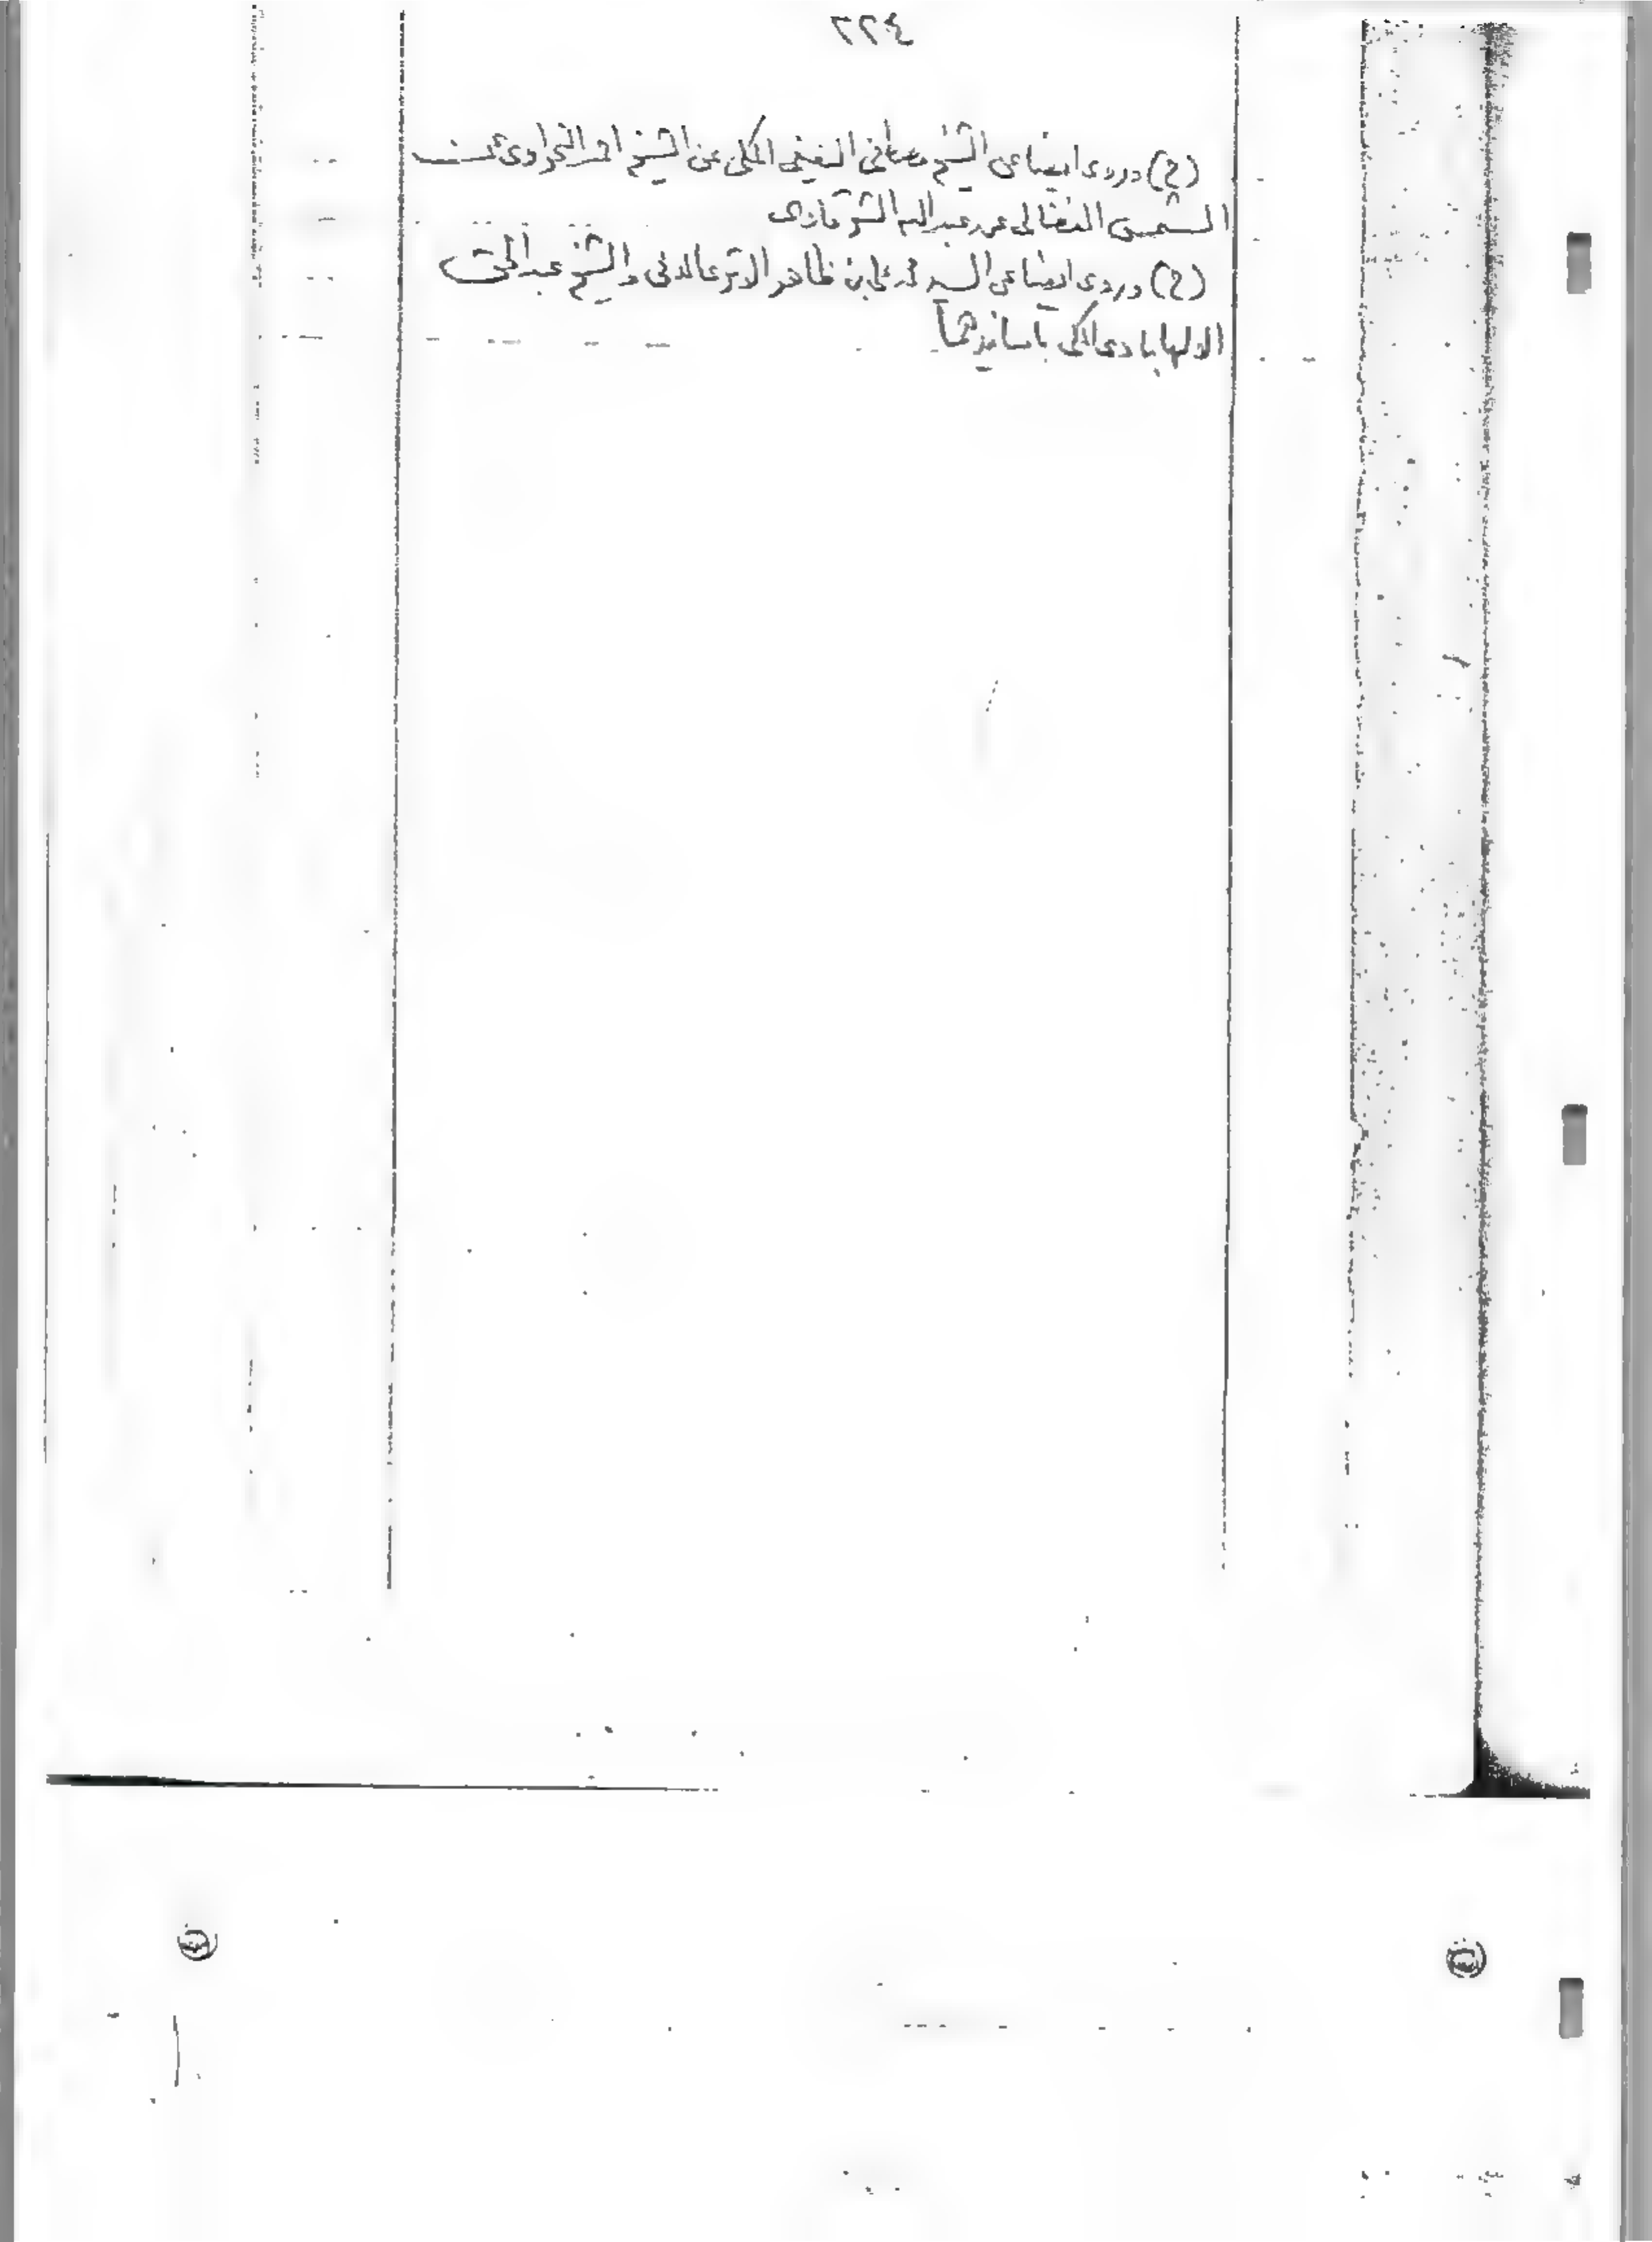 ٣٢٤
(ح) وروى ايضا عن الشيخ مصطفى العفيفي المكي عن الشيخ احمد النحراوي عن
الشمس الفضالي عن عبدالله الشرقاوى
(ح) وروى ايضا عن السيد محمد علي بن ظاهر الوترى المدنى والشيخ عبدالحق
الالهابادى المكى باسانيدهما